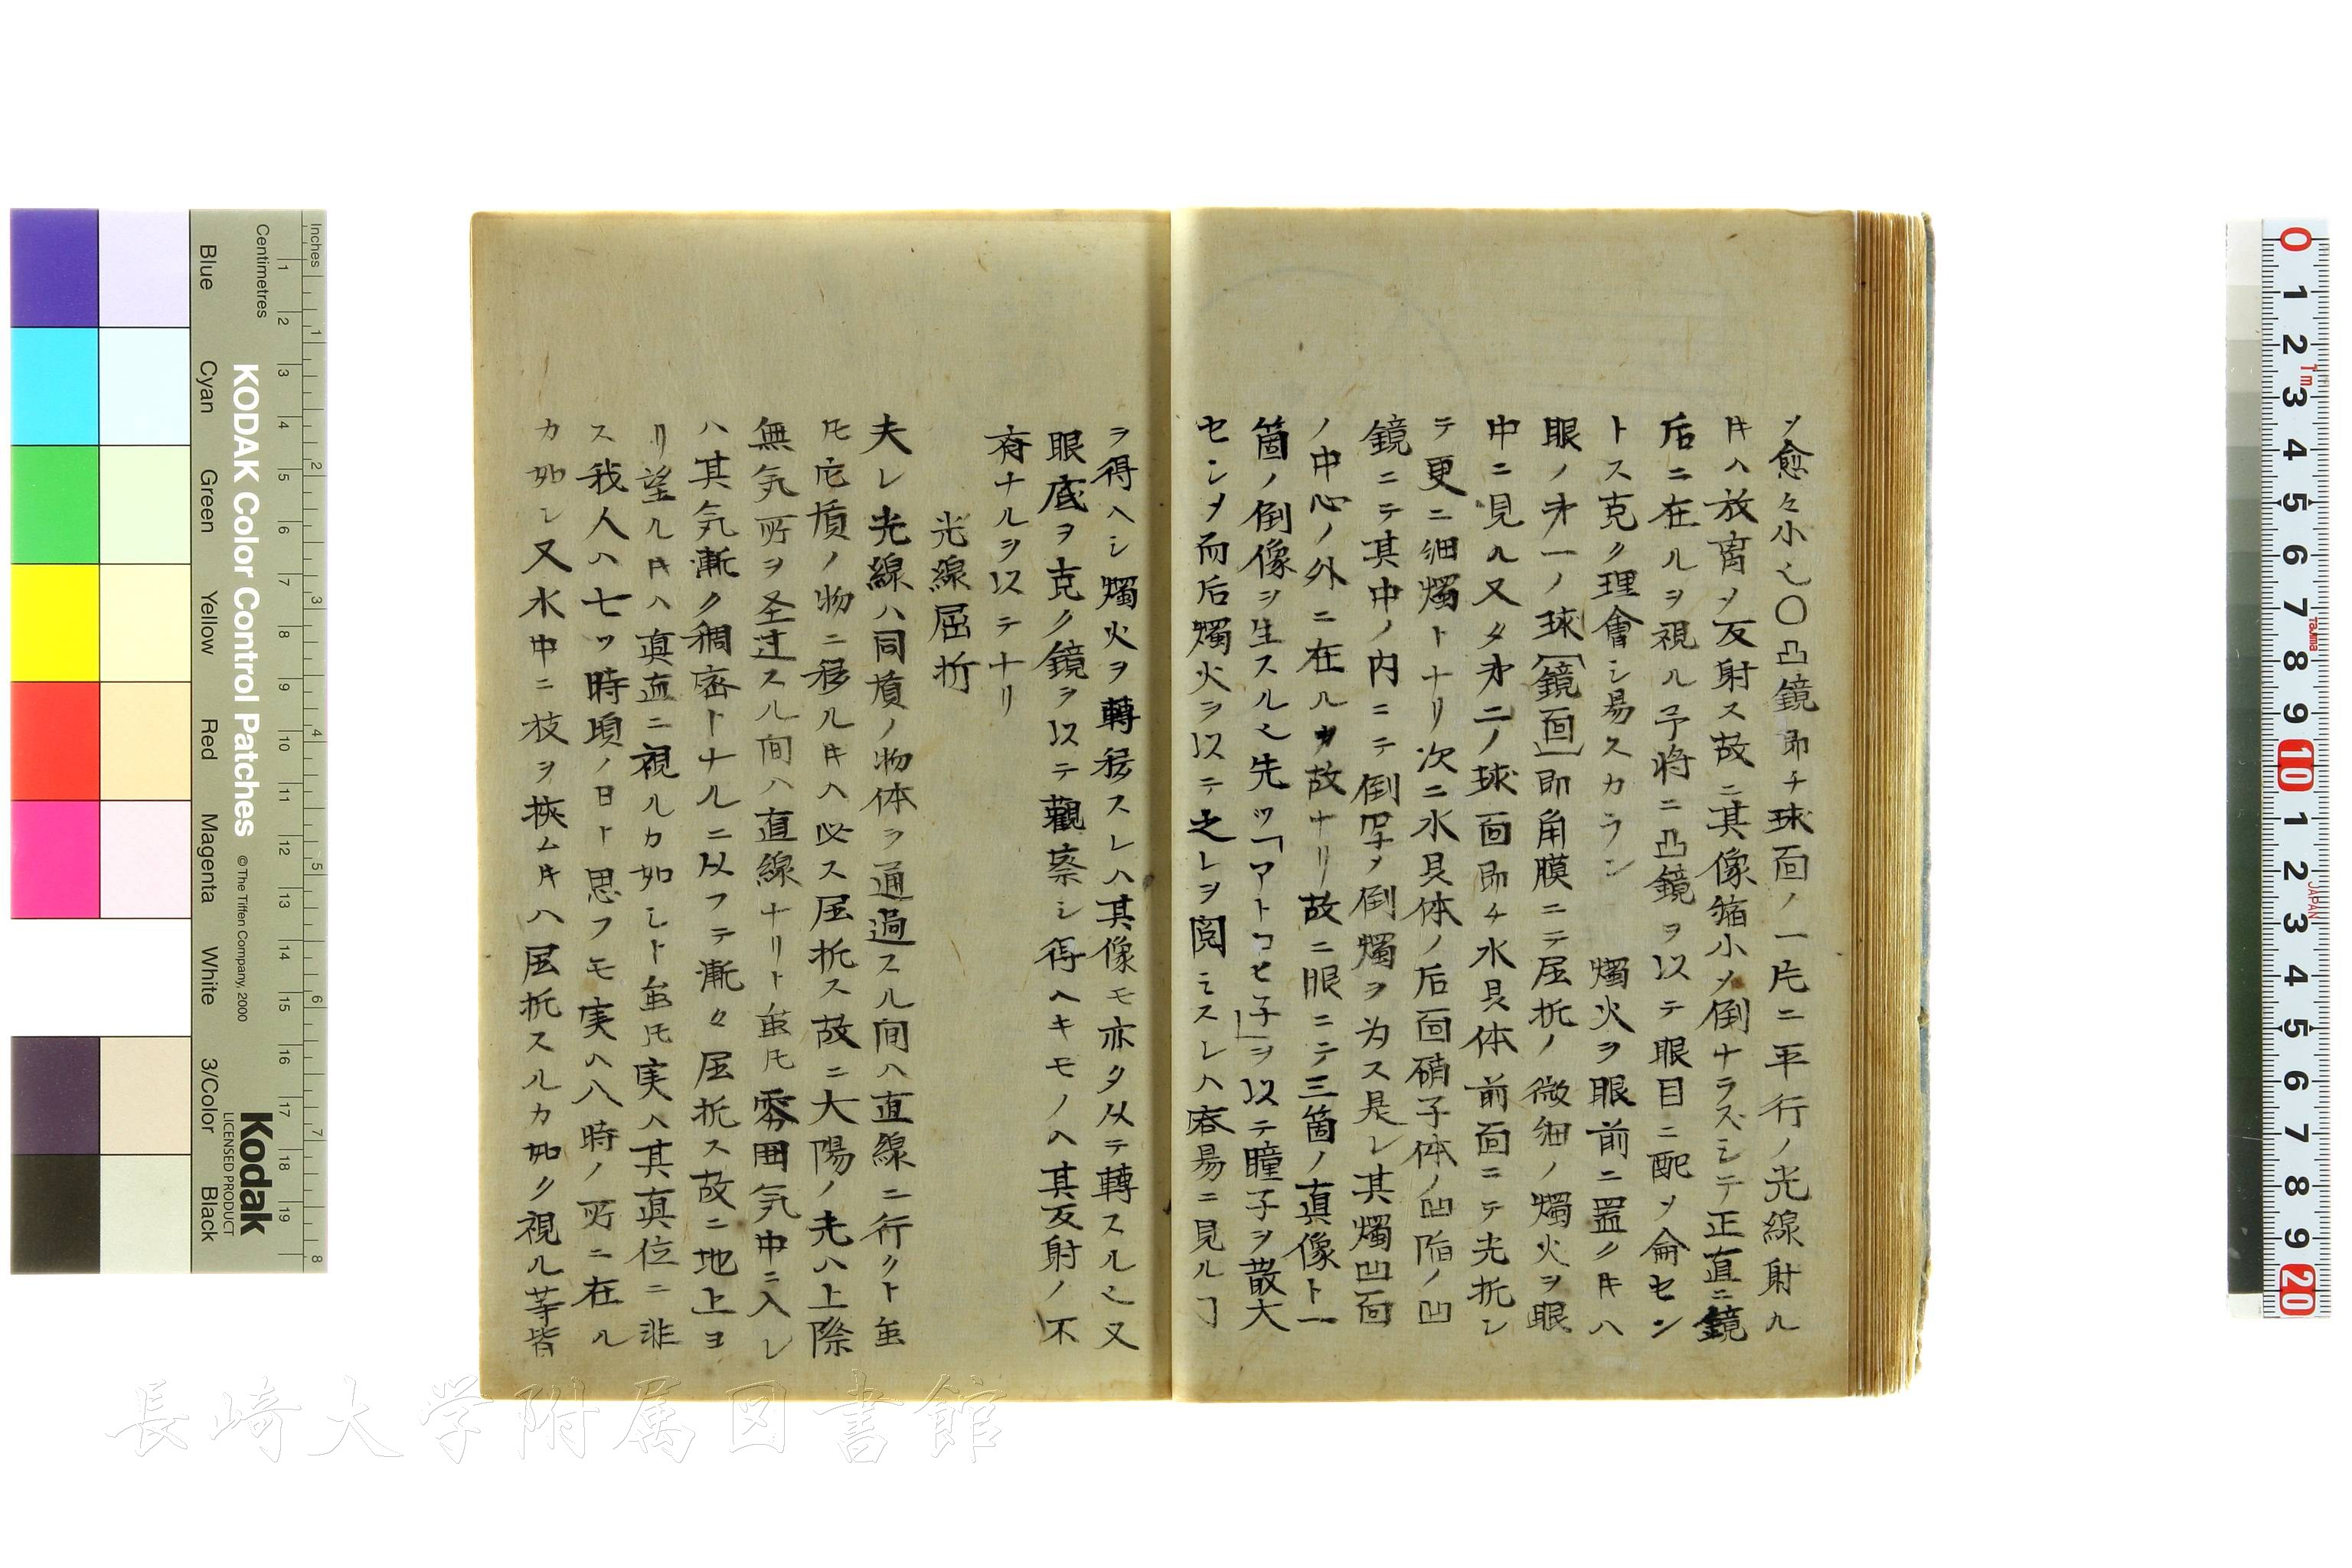 ソ愈々小也〇凸鏡即チ球面ノ一片ニ平行ノ光線射ル
片ハ放离ノ反射ス故ニ其像縮小ノ倒ナラズシテ正直ニ鏡
后ニ在ルヲ視ル予将ニ凸鏡ヲ以テ眼目ニ配ソ侖セン
トス克ク理會シ易スカラン 燭火ヲ眼前ニ置ク片ハ
眼ノ才一ノ球〔鏡面〕即角膜ニテ屈折ノ微細ノ燭火ヲ眼
中ニ見ル又タ才二ノ球面即チ水晶体前面ニテ光折レ
テ更ニ細燭トナリ次ニ水晶体ノ后面硝子体ノ凹陥ノ凹
鏡ニテ其中ノ内ニテ倒写ノ倒燭ヲ为ス是レ其燭凹面
ノ中心ノ外ニ在ルカ故ナリ故ニ眼ニテ三箇ノ真像ト一
箇ノ倒像ヲ生スル也先ツ「アトロヒ子」ヲ以テ瞳子ヲ散大
センメ而后燭火ヲ以テ之レヲ閲ミスレハ容易ニ見ルヿ
ヲ得ヘシ燭火ヲ轉移スレハ其像モ亦タ从テ轉スル也又
眼底ヲ克ク鏡ヲ以テ觀察シ得ヘキモノハ其反射ノ不
有ナルヲ以テナリ
光線屈折
夫レ光線ハ同質ノ物体ヲ通過スル间ハ直線ニ行クト虽
𪜈它質ノ物ニ移ル片ハ必ス屈折ス故ニ大陽ノ光ハ上際
無気所ヲ圣过スル间ハ直線ナリト虽𪜈雰囲気中ニ入レ
ハ其気漸ク稠密トナルニ从フテ漸々屈折ス故ニ地上ヨ
リ望ル片ハ真直ニ視ルカ如シト虽𪜈実ハ其真位ニ非
ス我人ハ七ッ時頃ノ日ト思フモ実ハ八時ノ所ニ在ル
カ如シ又水中ニ枝ヲ挾ム片ハ屈折スルカ如ク視ル等皆
長崎大学附属図書館
KODAK Color Control Patches
© The Tiffen Company, 2000
Kodak
LICENSED PRODUCT
Inches
Centimetres
Blue Cyan Green Yellow Red Magenta White 3/Color Black
1 2 3 4 5 6 7 8
1 2 3 4 5 6 7 8 9 10 11 12 13 14 15 16 17 18 19
0 1 2 3 4 5 6 7 8 9 10 1 2 3 4 5 6 7 8 9 20
1m
Tajima
JAPAN